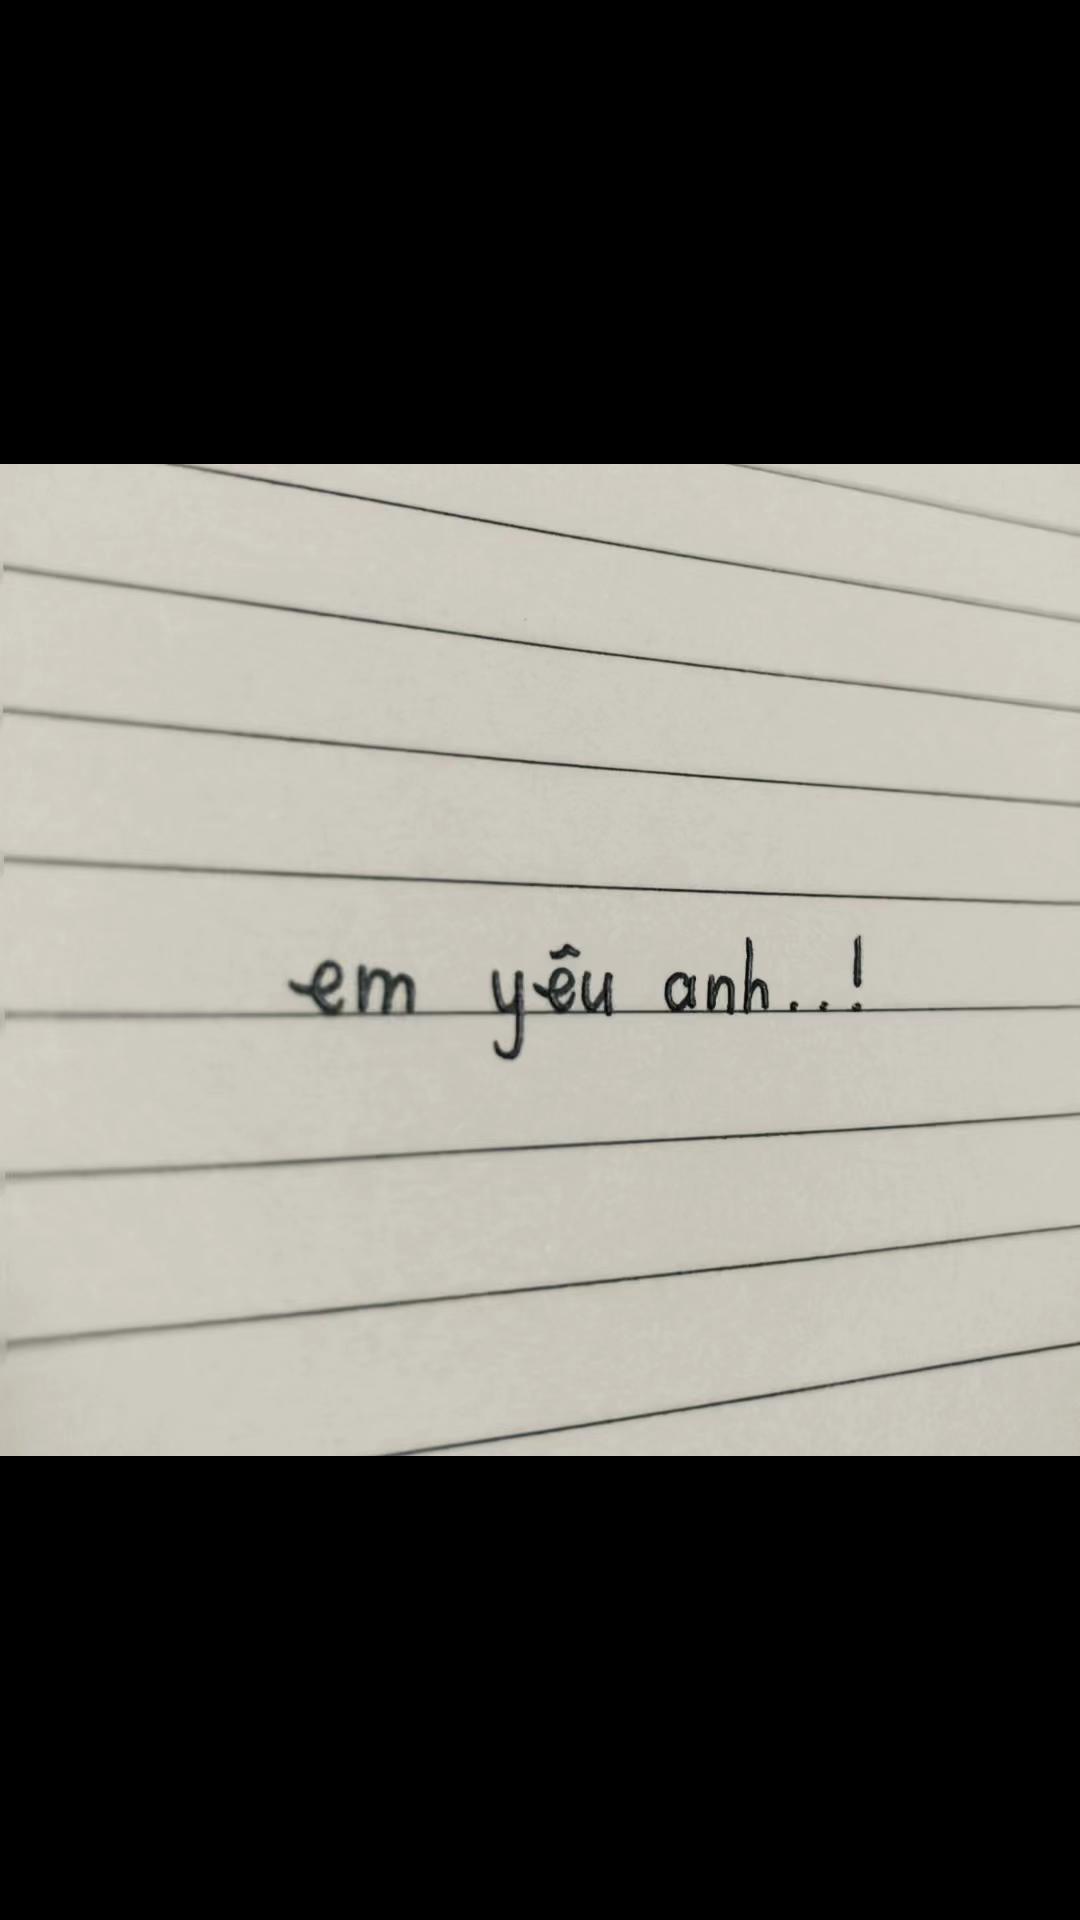 em yêu anh..!